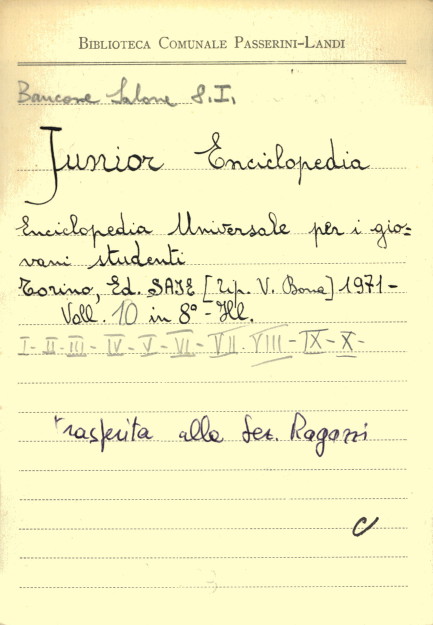 BIBLIOTECA COMUNALE PASSERINI-LANDI
Bancone Salone 8.I.
Junior Enciclopedia
Enciclopedia Universale per i gio=
vani studenti
Torino, Ed. SAIE [Tip. V. Bona] 1971-
Voll. 10 in 8° - Ill.
I - II - III - IV - V - VI - VII - VIII - IX - X -
trasferita alla Sez. Ragazzi